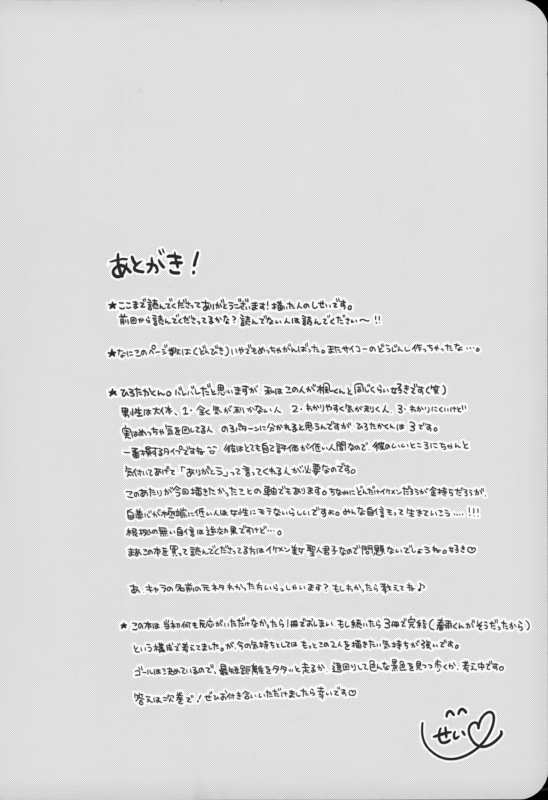 あとがき！
★ここまで読んでくださってありがとうございます！描いた人のしせいです。
前回から読んでくださってるかな？読んでない人は読んでください〜！！
★なにこのページ数は（どんびき）いやでもめっちゃがんばった。またサイコーのどうじんし作っちゃったな…。
★ひろたかくん。バレバレだと思いますが、私はこの人が桐くんと同じくらい好きです（笑）
男性は大体、1・全く気が利かない人 2・わかりやすく気が利く人 3・わかりにくいけど
実はめっちゃ気を回してる人 の3パターンに分かれると思うんですが ひろたかくんは3です。
一番損するタイプですね 彼はとても自己評価が低い人間なので、彼のいいところにちゃんと
気付いてあげて「ありがとう」って言ってくれる人が必要なのです。
このあたりが今回描きたかったことの軸でもあります。ちなみにどんだけイケメンだろうが金持ちだろうが、
自尊心が極端に低い人は女性にモテないらしいですよ。みんな自信もって生きていこう…！！！
根拠の無い自信は逆効果ですけど…。
まあこの本を買って読んでくださってる方はイケメン 美女 聖人君子なので問題ないでしょうね。好き♡
あ、キャラの名前の元ネタわかった方いらっしゃいます？もしわかったら教えてね♪
★この本は当初何も反応がいただけなかったら1冊でおしまい もし続いたら3冊で完結（ くんがそうだったから）
という構成で考えてました。が、今の気持ちとしてはもっとこの2人を描きたい気持ちが強いです。
ゴールは決めているので、最短距離をタタッと走るか、遠回りして色んな景色を見つつ歩くか、考え中です。
答えは次巻で！ぜひお付き合いいただけましたら幸いです♡
せい♡